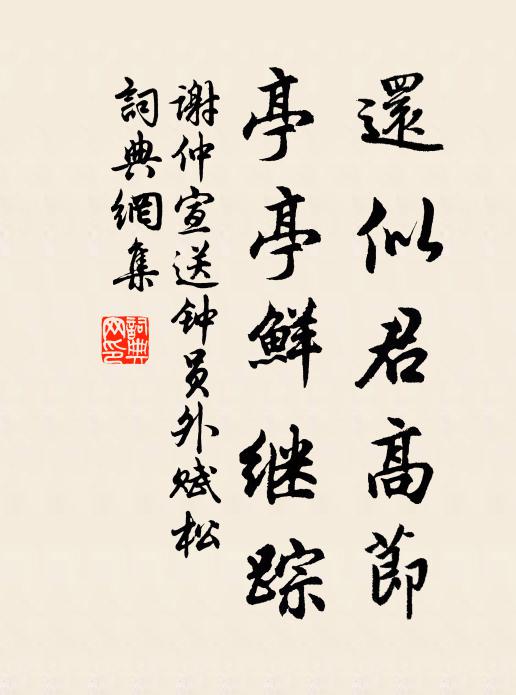 還似君高節
亭亭鮮继踪
谢仲宣送钟员外赋松
詞典網集
詞典网印